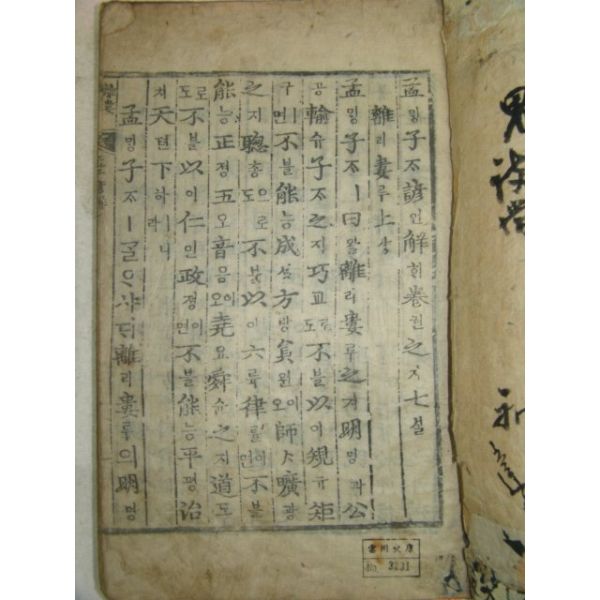 孟밍子ᄌᆞ諺언解ᄒᆡ卷권之지七칠
離리婁루上샹
孟밍子ᄌᆞㅣ曰왈離리婁루之지明명과公
공輸슈子ᄌᆞ之지巧교로도不블以이規규矩
구ㅣ면不블能능成셩方방員원이오師ᄉᆞ曠광
之지聰총으로도不블以이六륙律률이면不블
能능正졍五오音음이오堯요舜슌之지道도
로도不블以이仁인政졍이면不블能능平평治
치天텬下하ㅣ니라
孟밍子ᄌᆞㅣᄀᆞᆯᄋᆞ샤ᄃᆡ離리婁루의明명
No. 3231